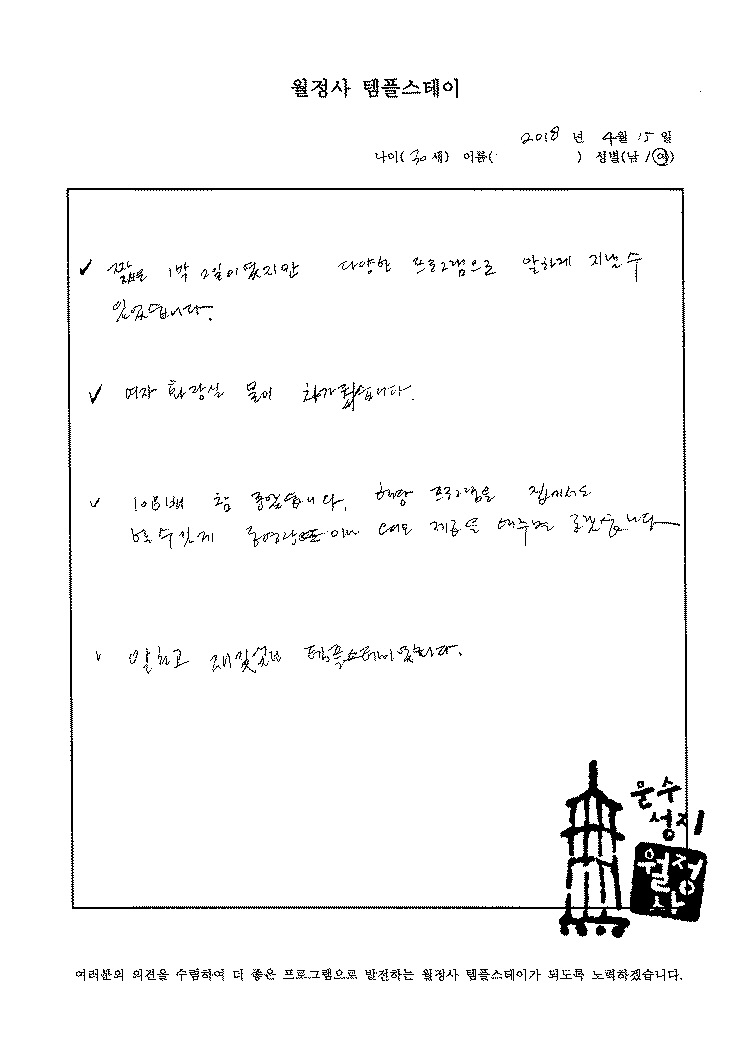 월정사 템플스테이
2018 년 4월 15일
나이( 30 세) 이름( ) 성별(남 / 여)
✓ 짧은 1박 2일이었지만 다양한 프로그램으로 알차게 지낼 수
있었습니다.
✓ 여자 화장실 물이 차가웠습니다.
✓ 108배 참 좋았습니다. 해당 프로그램을 집에서도
할 수 있게 동영상 이나 제공을 해주면 좋겠습니다
✓ 알차고 재밌었던 템플스테이였습니다.
문수
성지
월정
사
여러분의 의견을 수렴하여 더 좋은 프로그램으로 발전하는 월정사 템플스테이가 되도록 노력하겠습니다.